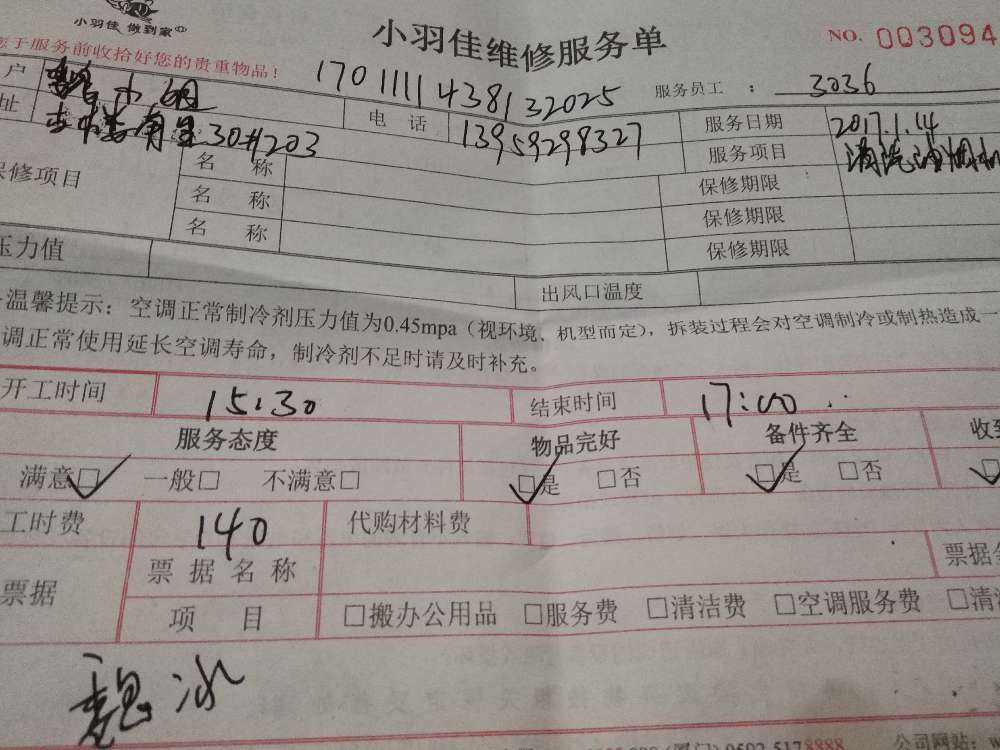 小羽佳 做到家
小羽佳维修服务单
NO. 003094
您于服务前收拾好您的贵重物品!
1701111438132025
服务员工 : 3036
户 小
址 30#203
电 话 13959298327
服务日期 2017.1.14
服务项目 清洗油烟机
保修项目
名 称
保修期限
名 称
保修期限
名 称
保修期限
压力值
出风口温度
温馨提示: 空调正常制冷剂压力值为0.45mpa (视环境、机型而定), 拆装过程会对空调制冷或制热造成一
调正常使用延长空调寿命, 制冷剂不足时请及时补充。
开工时间 15:30
结束时间 17:00
服务态度
物品完好
备件齐全
收到
满意□ 一般□ 不满意□
□是 □否
□是 □否
工时费 140
代购材料费
票据
票据名称
票据
项 目
□搬办公用品 □服务费 □清洁费 □空调服务费 □清
魏冰
公司网站: